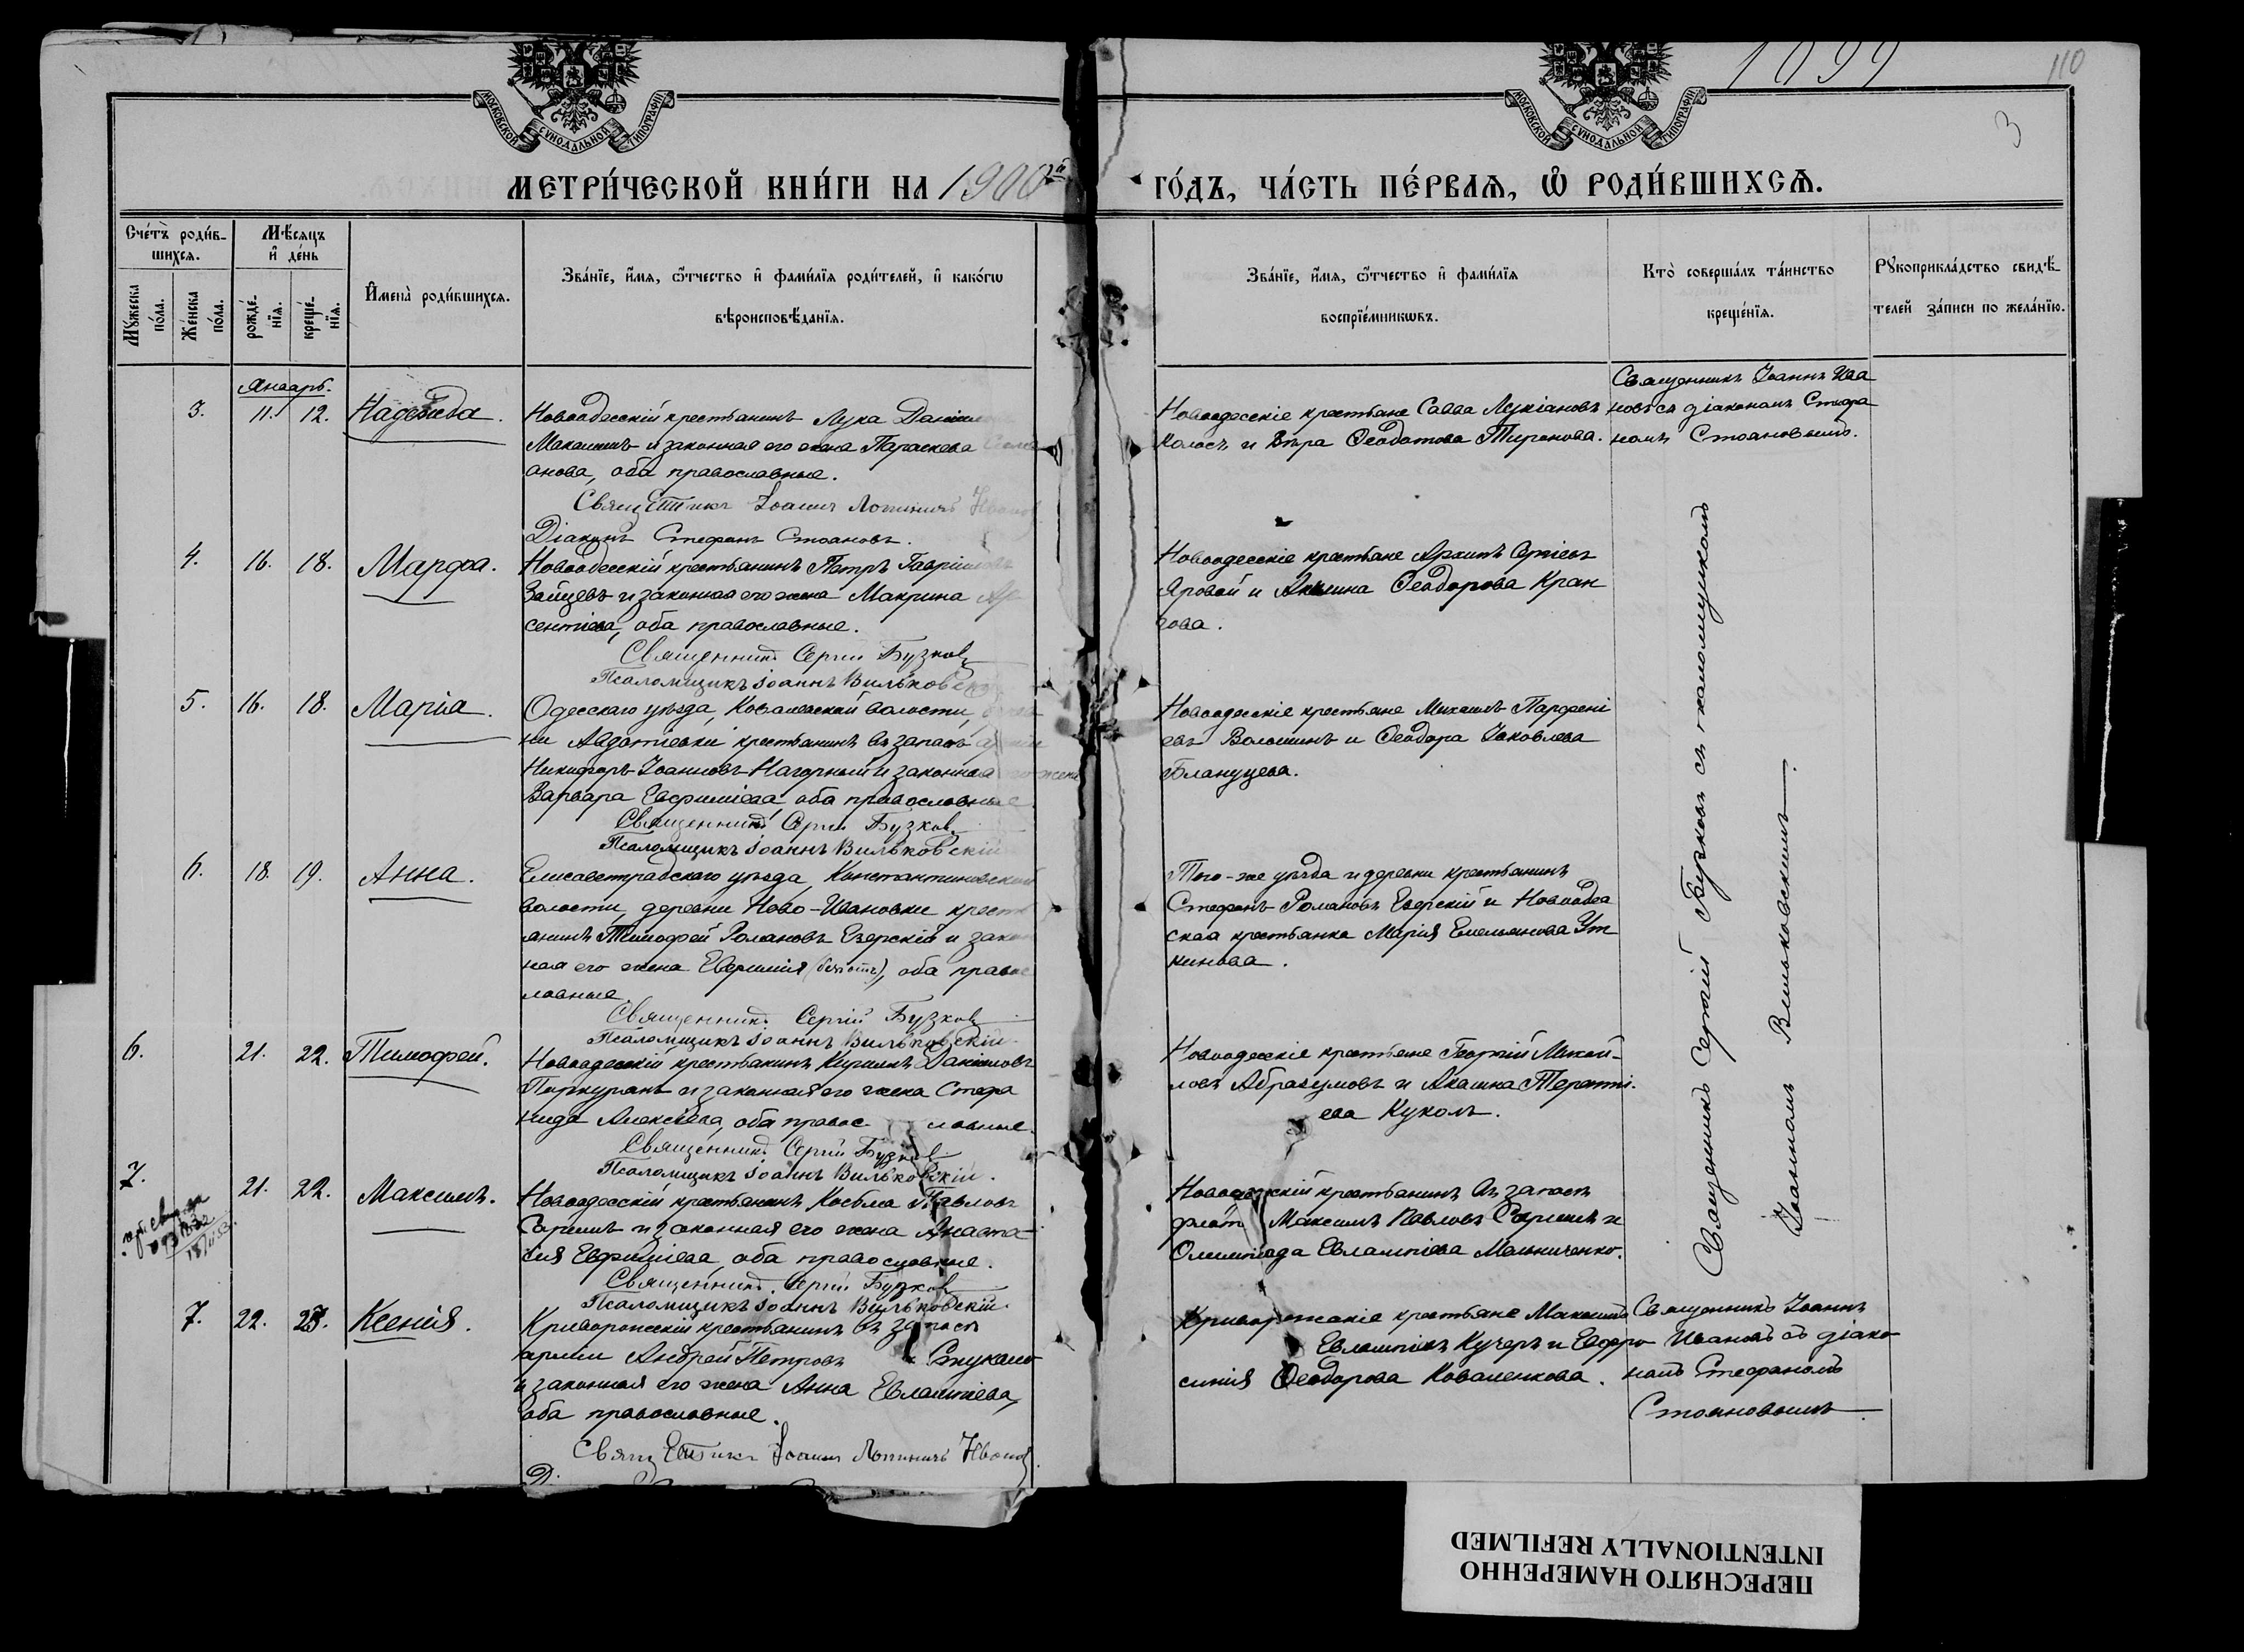 1099
110
3
МОСКОВСКОЙ СУНОДАЛЬНОЙ ТИПОГРАФІИ
МОСКОВСКОЙ СУНОДАЛЬНОЙ ТИПОГРАФІИ
МЕТРИ́ЧЕСКОЙ КНИ́ГИ НА 1900й ГО́ДЪ, ЧА́СТЬ ПЕ́РВАѦ, Ѡ҆ РОДИ́ВШИХСѦ.
Сче́тъ роди́в-
шихсѧ.
Мꙋ́жеска по́ла.
Же́нска по́ла.
Мѣ́сѧцъ
и҆ де́нь
рожде́-
нїѧ.
креще́-
нїѧ.
И҆мена̀ роди́вшихсѧ.
Зва́нїе, и҆́мѧ, ѻ҆́тчество и҆ фами́лїѧ роди́телей, и҆ како́гѡ
вѣроисповѣ́данїѧ.
Зва́нїе, и҆́мѧ, ѻ҆́тчество и҆ фами́лїѧ
воспрїе́мникѡвъ.
Кто̀ соверша́лъ та́инство
креще́нїѧ.
Рꙋкоприкла́дство свидѣ́-
телей за́писи по жела́нїю.
Январь.
3. 11. 12. Надежда.
Новоодесскій крестьянинъ Лука
и законная его жена Параскева
анова, оба православные.
Іоаннъ
Діаконъ Стефанъ Стояновъ.
Новоодесскіе крестьане Савва Лукіановъ
Колосъ и Вѣра Ѳеодотова Тиронова.
Священникъ Іоаннъ Ива
новъ съ діакономъ Стефа
номъ Стояновымъ.
4. 16. 18. Марфа.
Новоодесскій крестьанинъ Петръ
Зайцевъ и законная его жена Макрина Ар
сентіева, оба православные.
Священникъ Сергій Бузковъ
Псаломщикъ Іоаннъ Вильковскій
Новоодесскіе крестьане Архипъ Сергіевъ
Яровой и Акилина Ѳеодорова Кран
гова.
5. 16. 18. Марія.
Одесскаго уѣзда, Ковалевской волости,
ни Авдотіевки крестьанинъ въ запасѣ
Никифоръ Іоанновъ Нагорный и законная его жена
Варвара Евфиміева, оба православные
Священникъ Сергій Бузковъ
Псаломщикъ Іоаннъ Вильковскій
Новоодесскіе крестьане Михаилъ Парфені
евъ Волошинъ и Ѳеодора Іаковлева
Блануцева.
6. 18. 19. Анна.
Елисаветградскаго уѣзда, Константиновской
волости, деревни Ново-Ивановки крестъ
янинъ Тимофей Романовъ Езерскій и закон
ная его жена Евфимія оба правос
лавные.
Священникъ Сергій Бузковъ
Псаломщикъ Іоаннъ Вильковскій
Того-же уѣзда и деревни крестьанинъ
Стефанъ Романовъ Езерскій и Новоодес
ская крестьанка Марія Емельянова Ут
кинова.
Священникъ Сергій Бузковъ съ псаломщикомъ
Іоанномъ Вильковскимъ
6. 21. 22. Тимофей.
Новоодесскій крестьанинъ Кириллъ Даніиловъ
и законная его жена Стефа
нида Алексѣева, оба правос лавные.
Священникъ Сергій Бузковъ
Псаломщикъ Іоаннъ Вильковскій.
Новоодесскіе крестьане Георгій Михай-
ловъ Абразумовъ и Акилина Теренті-
ева Куколъ.
7. 21. 22. Максимъ.
Новоодесскій крестьанинъ Косьма Павловъ
и законная его жена Анаста-
сія Евфиміева, оба православные.
Священникъ Сергій Бузковъ
Псаломщикъ Іоаннъ Вильковскій.
Новоодесскій крестьанинъ въ запасѣ
флота Максимъ Павловъ и
Олимпіада Евлампіева Мельниченко.
7. 22. 23. Ксенія.
Криворожскій крестьанинъ въ запасѣ
арміи Андрей Петровъ
и законная его жена Анна Евлампіева,
оба православные.
Іоаннъ
Криворожскіе крестьане
Евлампіевъ Кучеръ и Евфро
синія Ѳеодорова Коваленкова.
Священникъ Іоаннъ
Ивановъ съ діако
номъ Стефаномъ
Стояновымъ
ПЕРЕСНЯТО НАМЕРЕННО
INTENTIONALLY REFILMED